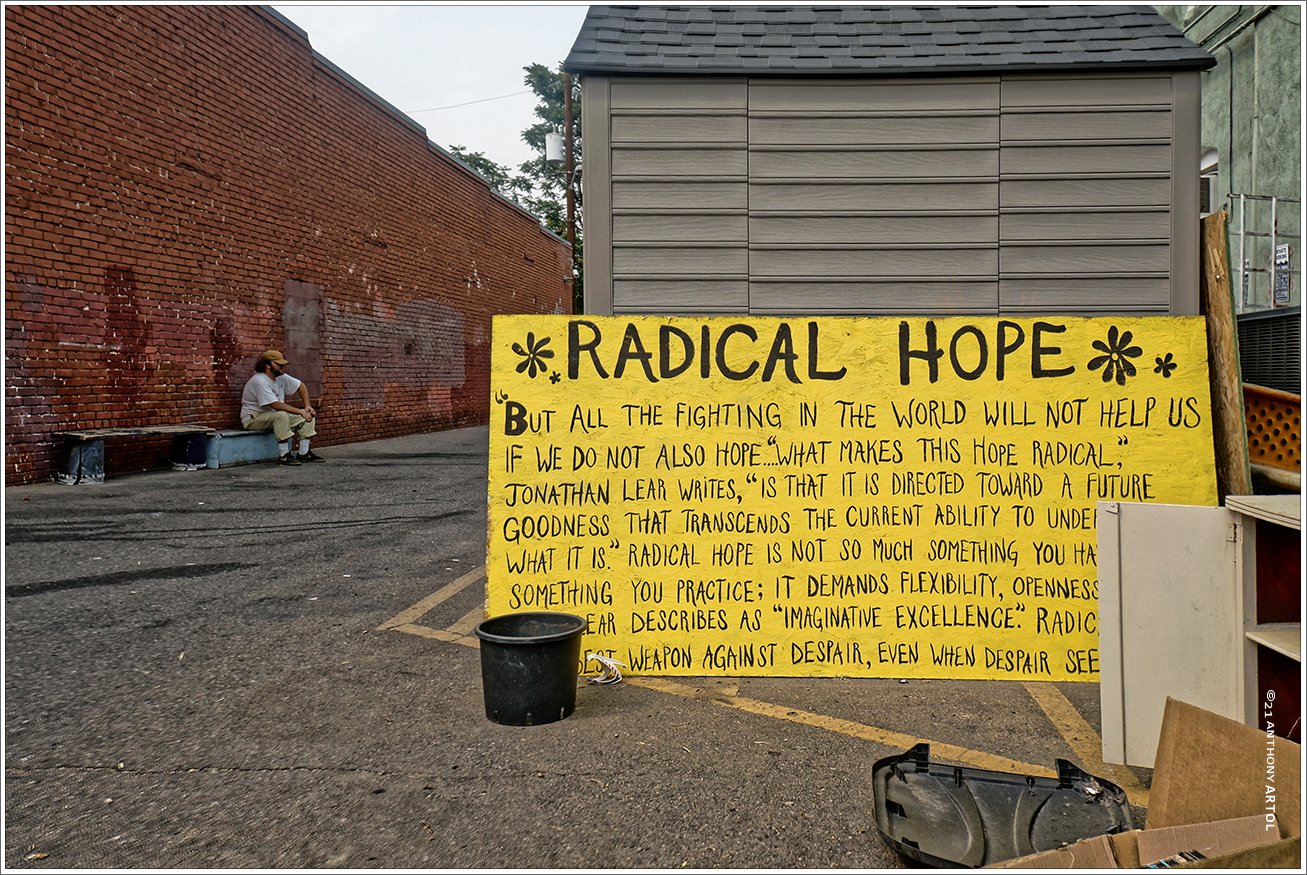 RADICAL HOPE
"BUT ALL THE FIGHTING IN THE WORLD WILL NOT HELP US
IF WE DO NOT ALSO HOPE."...."WHAT MAKES THIS HOPE RADICAL,"
JONATHAN LEAR WRITES, "IS THAT IT IS DIRECTED TOWARD A FUTURE
GOODNESS THAT TRANSCENDS THE CURRENT ABILITY TO UNDE
WHAT IT IS." RADICAL HOPE IS NOT SO MUCH SOMETHING YOU HA
SOMETHING YOU PRACTICE; IT DEMANDS FLEXIBILITY, OPENNESS
EAR DESCRIBES AS "IMAGINATIVE EXCELLENCE." RADIC
BEST WEAPON AGAINST DESPAIR, EVEN WHEN DESPAIR SEE
©21 ANTHONY ARTOL